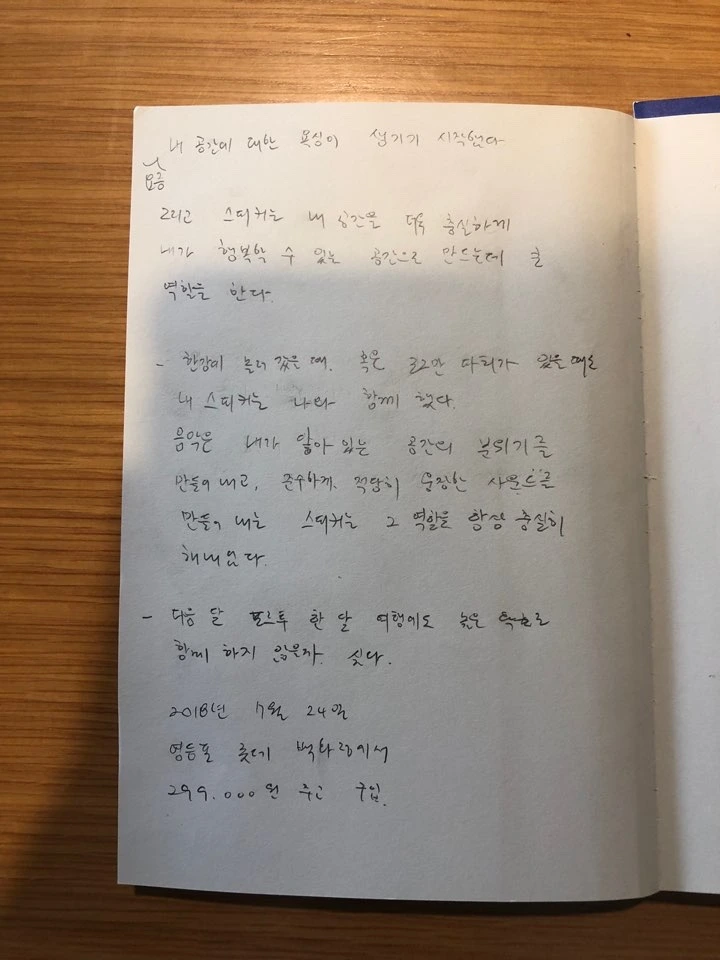 내 공간에 대한 욕심이 생기기 시작했다
요즘
그리고 스피커는 내 공간을 더욱 충실하게
내가 행복할 수 있는 공간으로 만드는데 큰
역할을 한다.
- 한강에 놀러 갔을 때, 혹은 파티가 있을 때도
내 스피커는 나와 함께 했다.
음악은 내가 앉아 있는 공간의 분위기를
만들어 내고, 준수하게, 적당히 웅장한 사운드를
만들어 내는 스피커는 그 역할을 항상 충실히
해내었다.
- 다음 달 포르투 한 달 여행에도 높은 확률로
함께 하지 않을까 싶다.
2018년 7월 24일
영등포 롯데 백화점에서
299.000원 주고 구입.